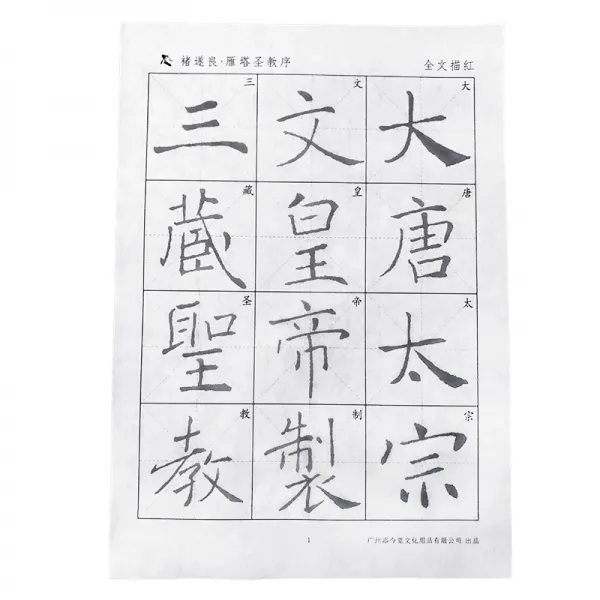 褚遂良·雁塔圣教序
全文描红
大唐太宗
文皇帝製
三藏聖教
大
唐
太
宗
文
皇
帝
制
三
藏
圣
教
1
文化用品有限公司 出品